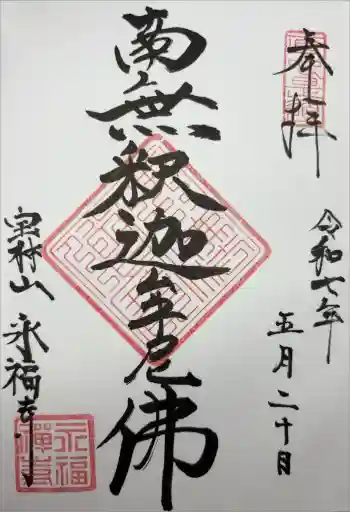 奉拝
令和七年
五月二十日
南無釈迦牟尼佛
宝林山 永福寺
永福禅寺